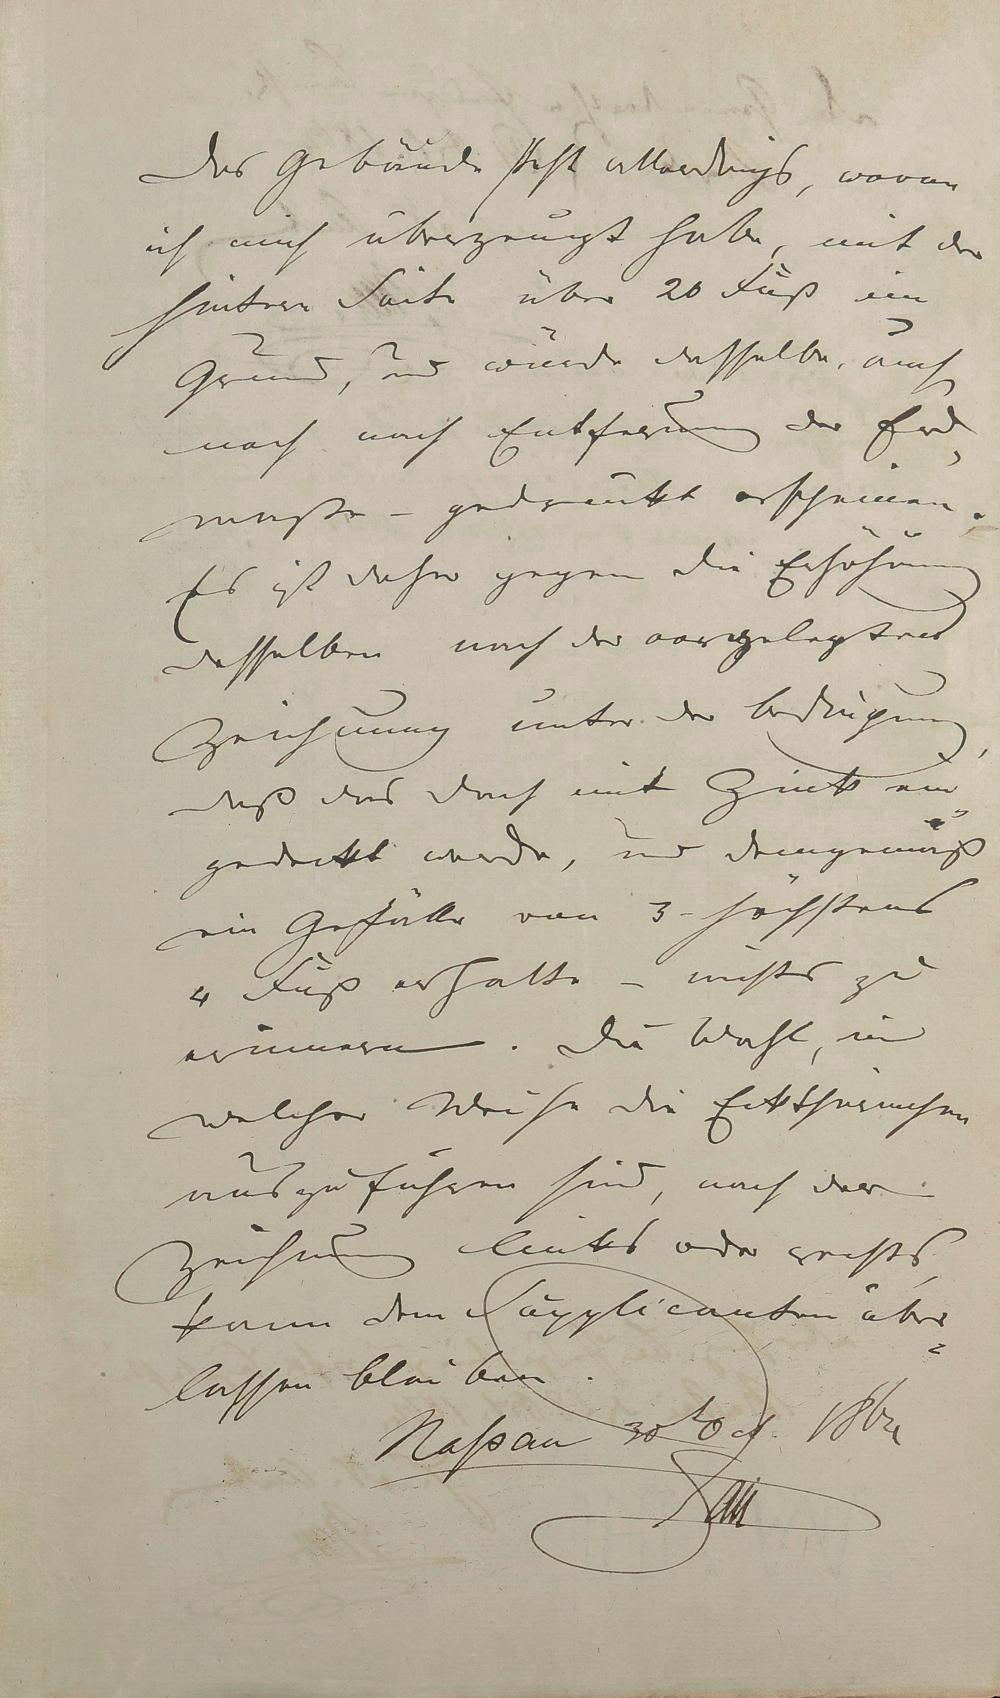 Das Gebäude steht allerdings, wovon
ich mich überzeugt habe, mit der
hintern Seite über 20 Fuß im
Grund, und würde dasselbe, auch
noch nach Entfernung der Erd-
maße – gedrückt erscheinen.
Es ist daher gegen die Erhöhung
desselben nach der vorgelegten
Zeichnung unter der Bedingung,
daß das Dach mit Zink ein-
gedeckt werde, und demgemäß
ein Gefälle von 3 – höchstens
4 Fuß erhalte – nichts zu
erinnern. Die Wahl, in
welcher Weise die
auszuführen sind, nach der
Zeichnung links oder rechts,
kann dem Supplicanten über-
lassen bleiben.
Naßau 30t Oct.